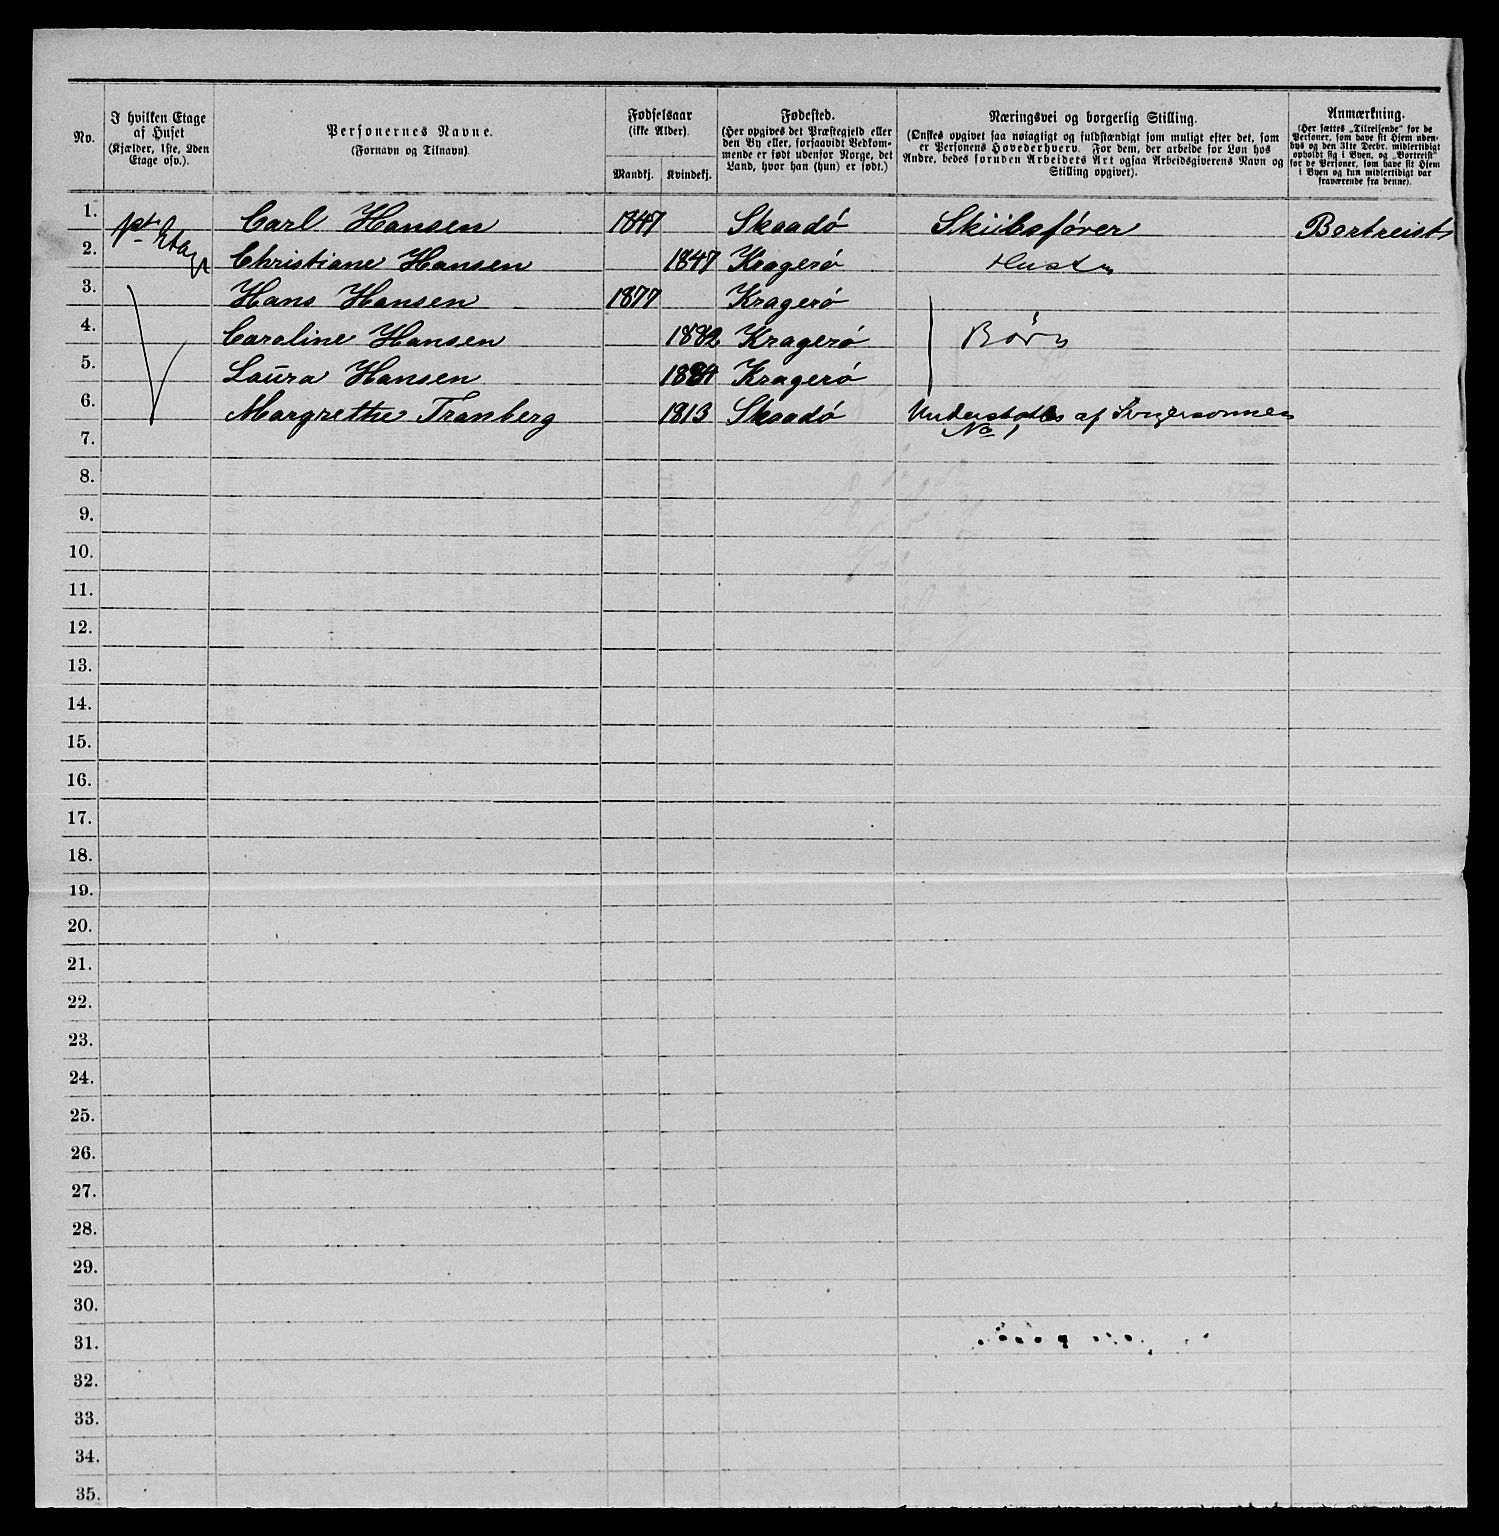 No.
I hvilken Etage
af Huset
(Kjælder, 1ste, 2den
Etage osv.).
Personernes Navne.
(Fornavn og Tilnavn).
Fødselsaar
(ikke Alder).
Mandkj. Kvindekj.
Fødested.
(Her opgives det Præstegjeld eller
den By eller, forsaavidt Vedkom-
mende er født udenfor Norge, det
Land, hvor han (hun) er født.)
Næringsvei og borgerlig Stilling.
(Ønskes opgivet saa nøiagtigt og fuldstændigt som muligt efter det, som
er Personens Hovederhverv. For dem, der arbeide for Løn hos
Andre, bedes foruden Arbeidets Art ogsaa Arbeidsgiverens Navn og
Stilling opgivet).
Anmærkning.
(Her sættes „Tilreisende“ for de
Personer, som have sit Hjem uden-
bys og den 31te Decbr. midlertidigt
opholdt sig i Byen, og „Bortreist“
for de Personer, som have sit Hjem
i Byen og kun midlertidigt var
fraværende fra denne).
1. 1st Etage Carl Hansen 1847 Skaadø Skibsfører Bortreist
2. Christiane Hansen 1847 Kragerø Hustr
3. Hans Hansen 1877 Kragerø
4. Caroline Hansen 1882 Kragerø Børn
5. Laura Hansen 1884 Kragerø
6. Margrethe Tranberg 1813 Skaadø Understøttes af Svigersønnen
No 1
7.
8.
9.
10.
11.
12.
13.
14.
15.
16.
17.
18.
19.
20.
21.
22.
23.
24.
25.
26.
27.
28.
29.
30.
31.
32.
33.
34.
35.